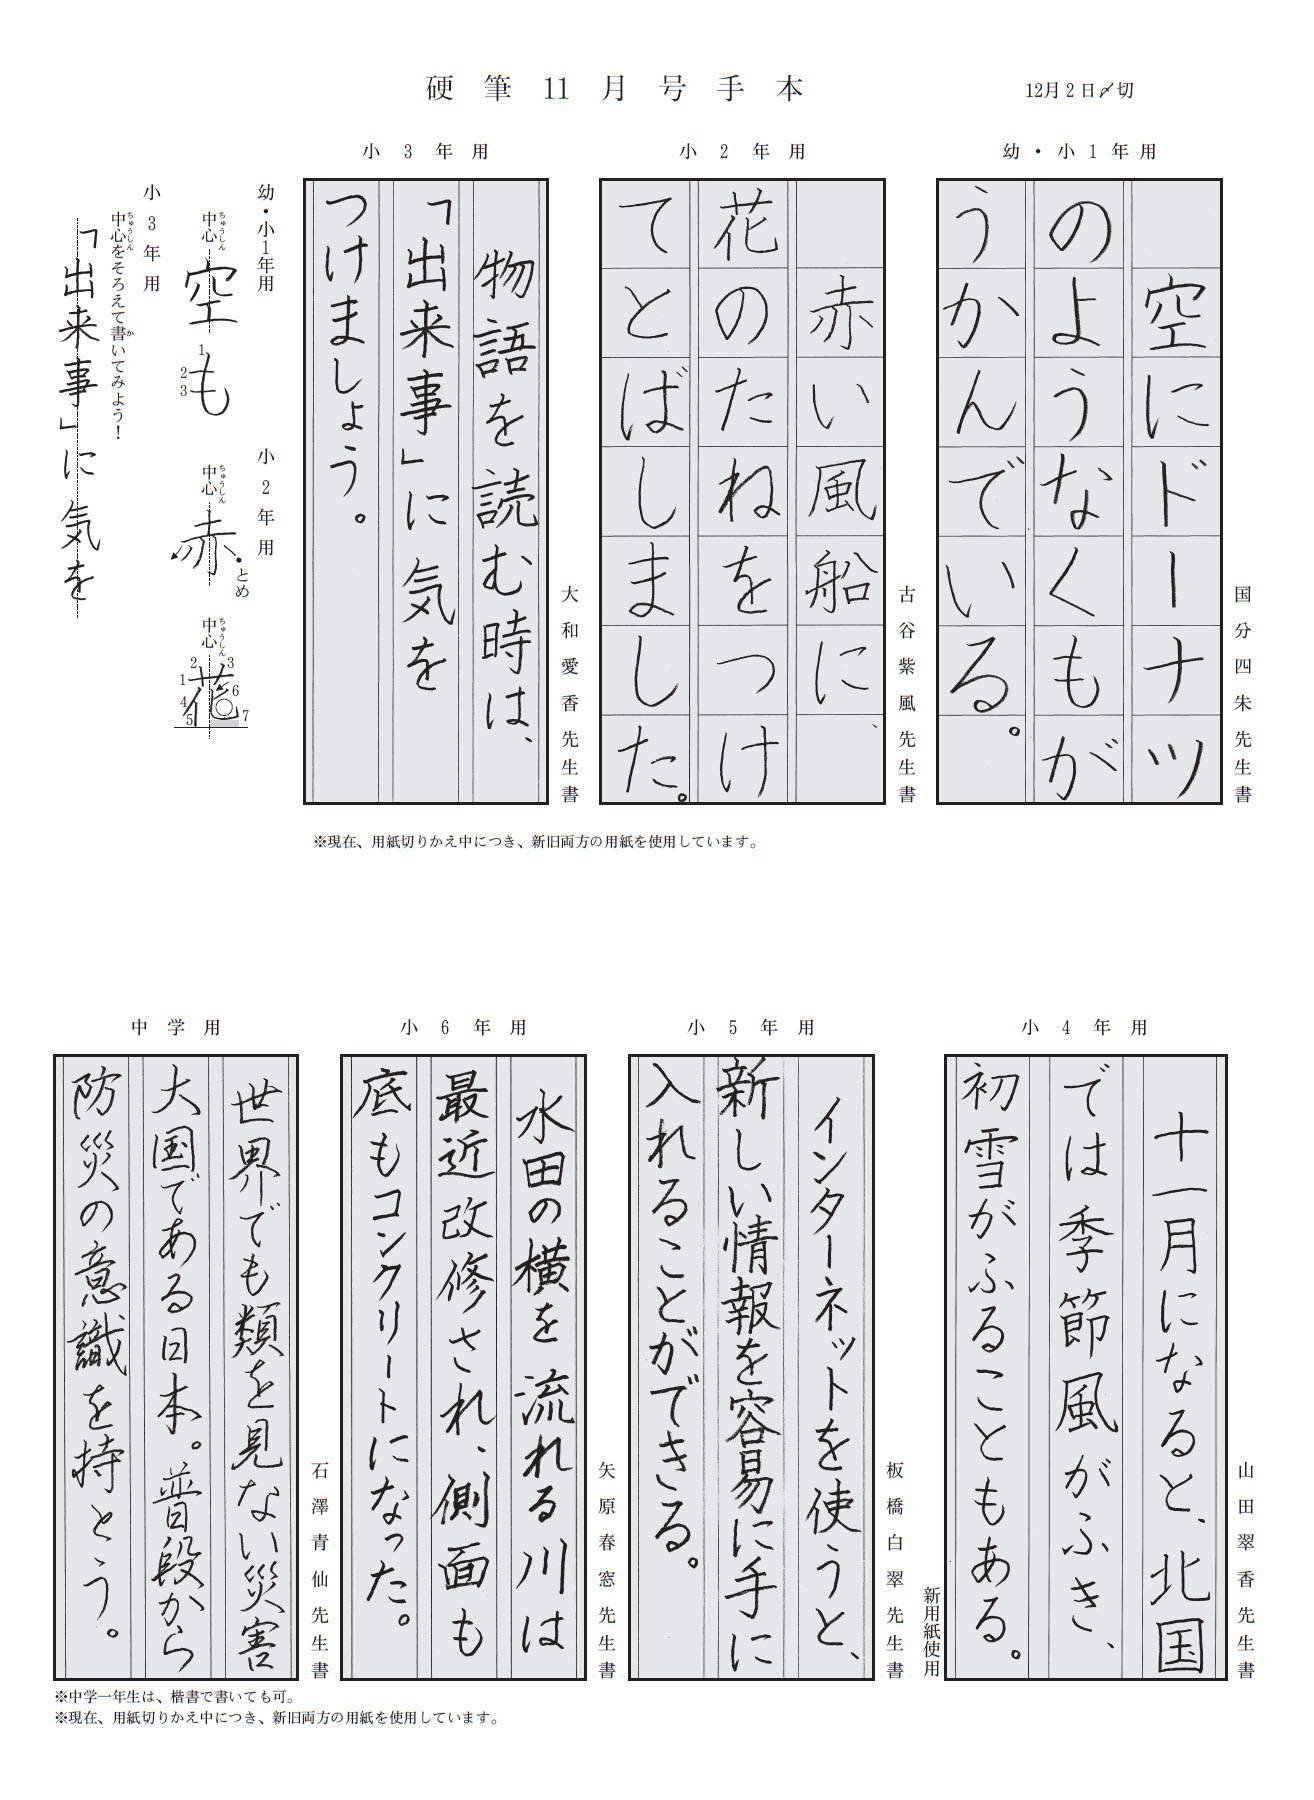 硬筆11月号手本
12月2日〆切
幼・小1年用
空にドーナツ
のようなくもが
うかんでいる。
国分四朱先生書
小2年用
赤い風船に、
花のたねをつけ
てとばしました。
古谷紫風先生書
小3年用
物語を読む時は、
「出来事」に気を
つけましょう。
大和愛香先生書
幼・小1年用
中心
ちゅうしん
空
も
1
2
3
小2年用
中心
ちゅうしん
赤
とめ
中心
ちゅうしん
花
1
2
3
4
5
6
7
小3年用
中心をそろえて書いてみよう!
ちゅうしん
か
「出来事」に気を
※現在、用紙切りかえ中につき、新旧両方の用紙を使用しています。
小4年用
十一月になると、北国
では季節風がふき、
初雪がふることもある。
山田翠香先生書
新用紙使用
小5年用
インターネットを使うと、
新しい情報を容易に手に
入れることができる。
板橋白翠先生書
小6年用
水田の横を流れる川は
最近改修され、側面も
底もコンクリートになった。
矢原春窓先生書
中学用
世界でも類を見ない災害
大国である日本。普段から
防災の意識を持とう。
石澤青仙先生書
※中学一年生は、楷書で書いても可。
※現在、用紙切りかえ中につき、新旧両方の用紙を使用しています。